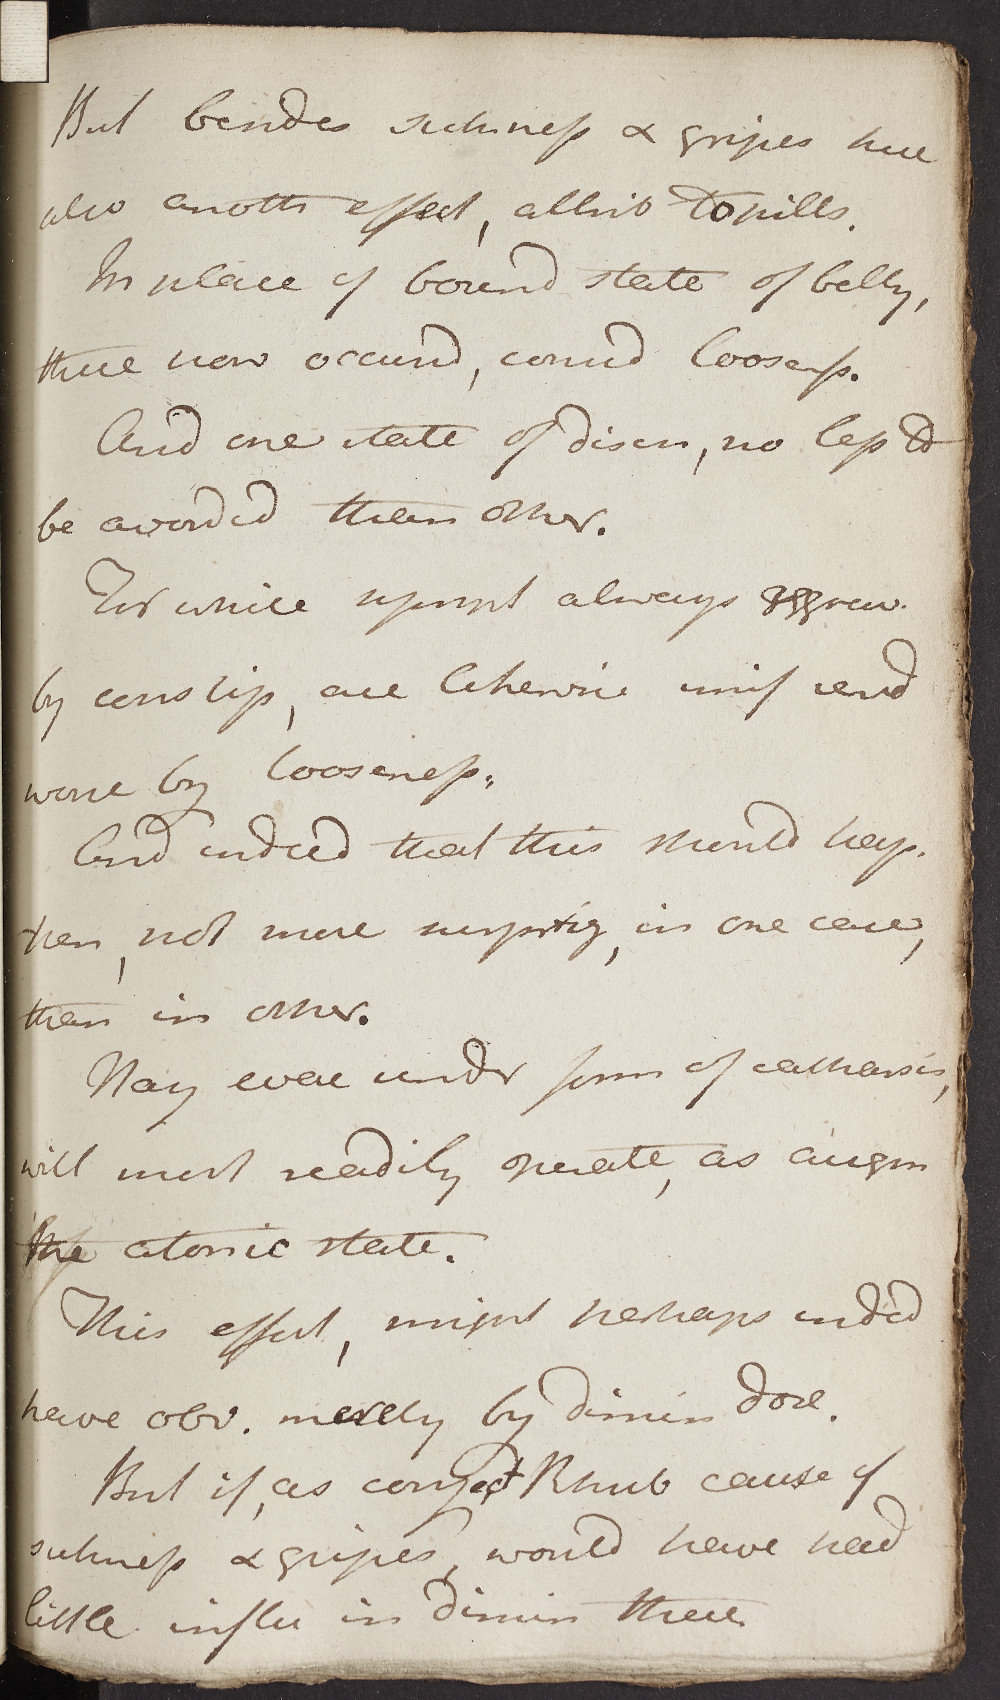 But besides sickness & gripes here
also anoth effect, attrib to pills.
In place of bound state of belly,
there now occurrd, consid loosenss.
And one state of disen, no less to
be avoided than other.
For while sympt always aggrav.
by constip, are likewise unif rend
worse by looseness.
And indeed that this should hap-
pen, not more surpriig, in one case,
than in other.
Nay even under form of catharsis,
will most readily operate, as augm
the atonic state.
This effect, might perhaps indeed
have obv. merely by dimin dose.
But if, as conject Rhub cause of
sickness & gripes, would have had
little influ in dimin these